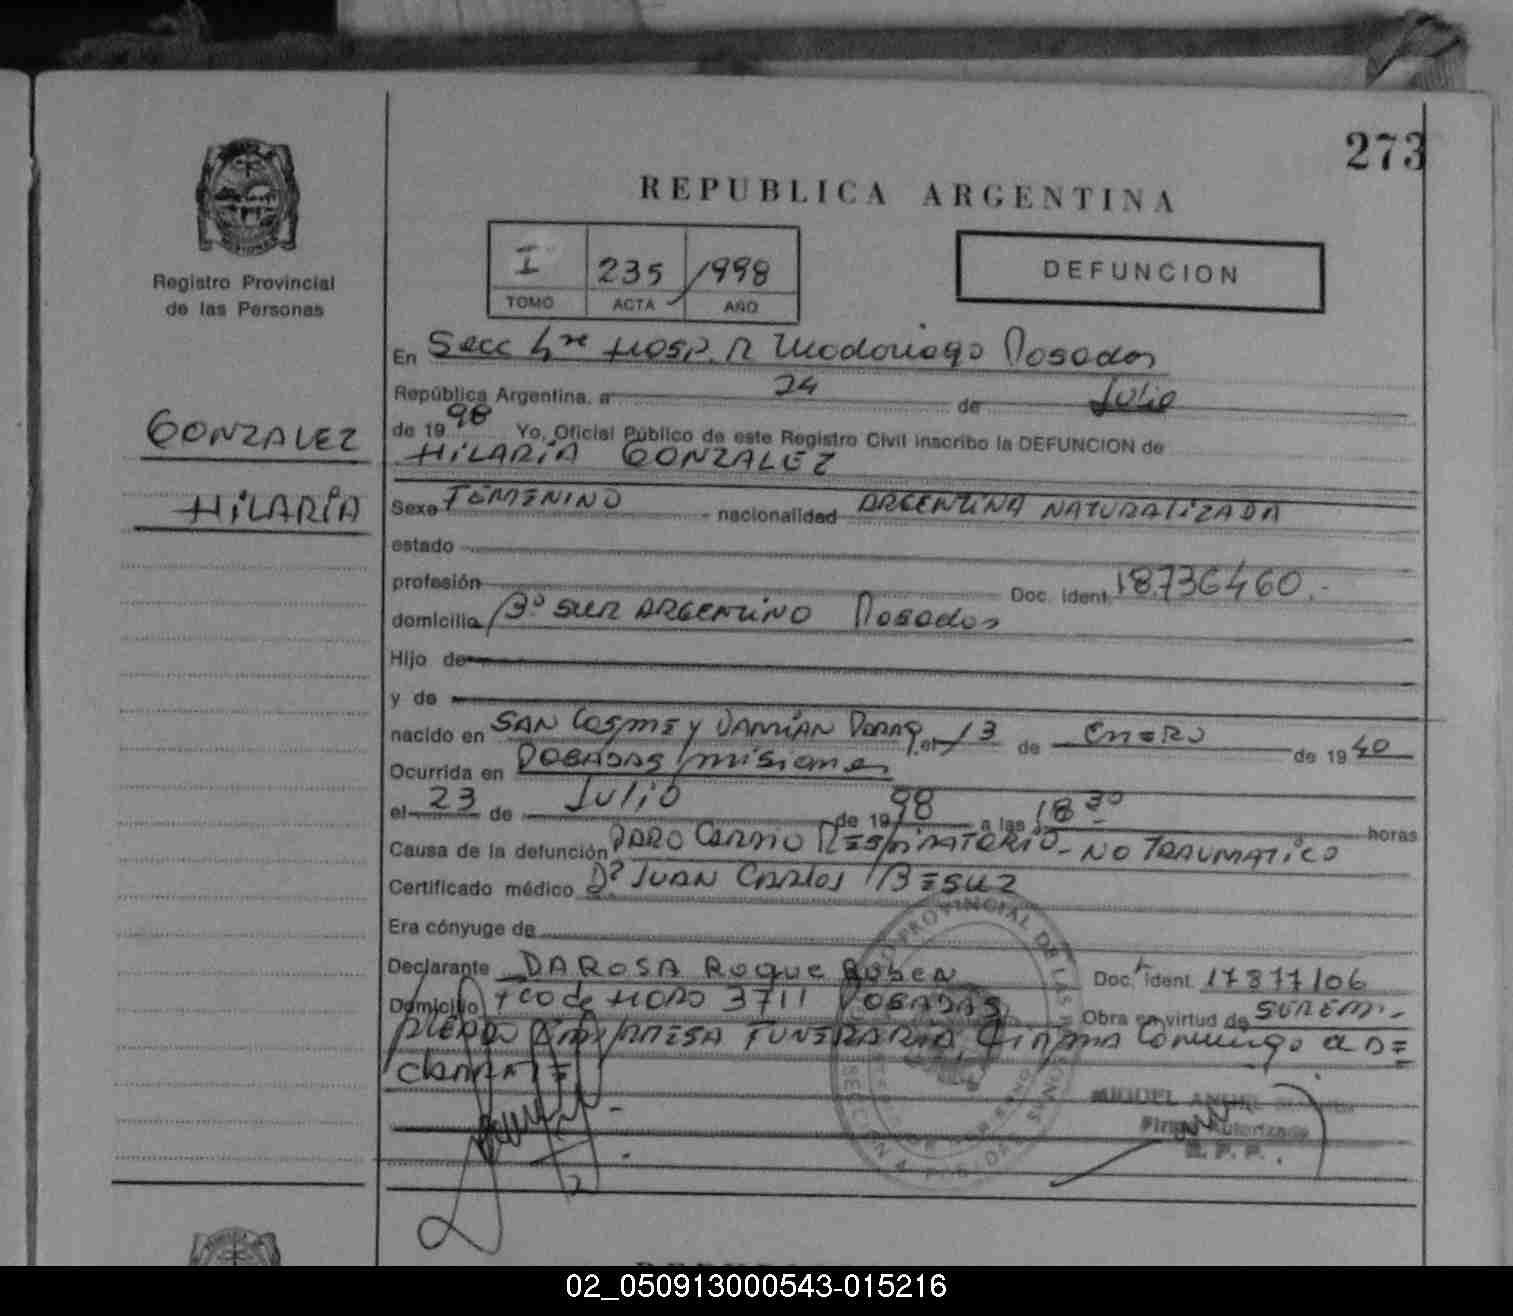 273
REPUBLICA ARGENTINA
Registro Provincial
de las Personas
I 235 1998
TOMO ACTA AÑO
DEFUNCION
En Secc 4ta Hosp. R Madariaga Posadas
República Argentina, a 24 de Julio
de 1998 Yo, Oficial Público de este Registro Civil inscribo la DEFUNCION de
HILARIA GONZALEZ
GONZALEZ
HILARIA
Sexo FEMENINO nacionalidad ARGENTINA NATURALIZADA
estado
profesión Doc. ident. 18.736460.-
domicilio Bº SUR ARGENTINO Posadas
Hijo de
y de
nacido en SAN COSME Y DAMIAN Parag. el 13 de Enero de 1940
Ocurrida en POSADAS Misiones
el 23 de JULIO de 1998 a las 18 30 horas
Causa de la defunción PARO CARDIO RESPIRATORIO - NO TRAUMATICO
Certificado médico Dr JUAN CARLOS BESUZ
Era cónyuge de
Declarante DA ROSA Roque Ruben Doc. ident. 17877106
Domicilio Fco de HARO 3711 POSADAS Obra en virtud de SER EM-
PLEADO EMPRESA FUNERARIA, FIRMA Conmigo el DE
clarante
REGISTRO PROVINCIAL DE LAS PERSONAS
SECCION 4 POSADAS
MIGUEL ANGEL
Firma Autorizada
R. P. P.
02_050913000543-015216